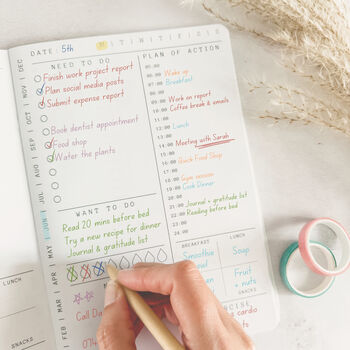 DATE: 5th M T W T F S S
NEED TO DO
Finish work project report
Plan social media posts
Submit expense report
Book dentist appointment
Food shop
Water the plants
WANT TO DO
Read 20 mins before bed
Try a new recipe for dinner
Journal & gratitude list
PLAN OF ACTION
05:00
06:00 Wake up
07:00 Breakfast
08:00
09:00 Work on report
10:00 Coffee break & emails
11:00
12:00 Lunch
13:00
14:00 Meeting with Sarah
15:00
16:00 Quick Food Shop
17:00
18:00 Gym session
19:00 Cook Dinner
20:00
21:00 Journal + gratitude list
22:00 Reading before bed
23:00
24:00
BREAKFAST LUNCH
Smoothie Soup
SNACKS
Fruit
+ nuts
Call Da
cardio
DEC
NOV
OCT
SEP
AUG
JUL
JUN
MAY
APR
MAR
FEB
LUNCH
SNACKS